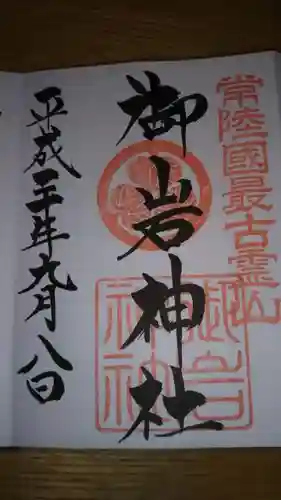 常陸國最古霊山
御岩神社
御岩神社
平成二十年九月八日